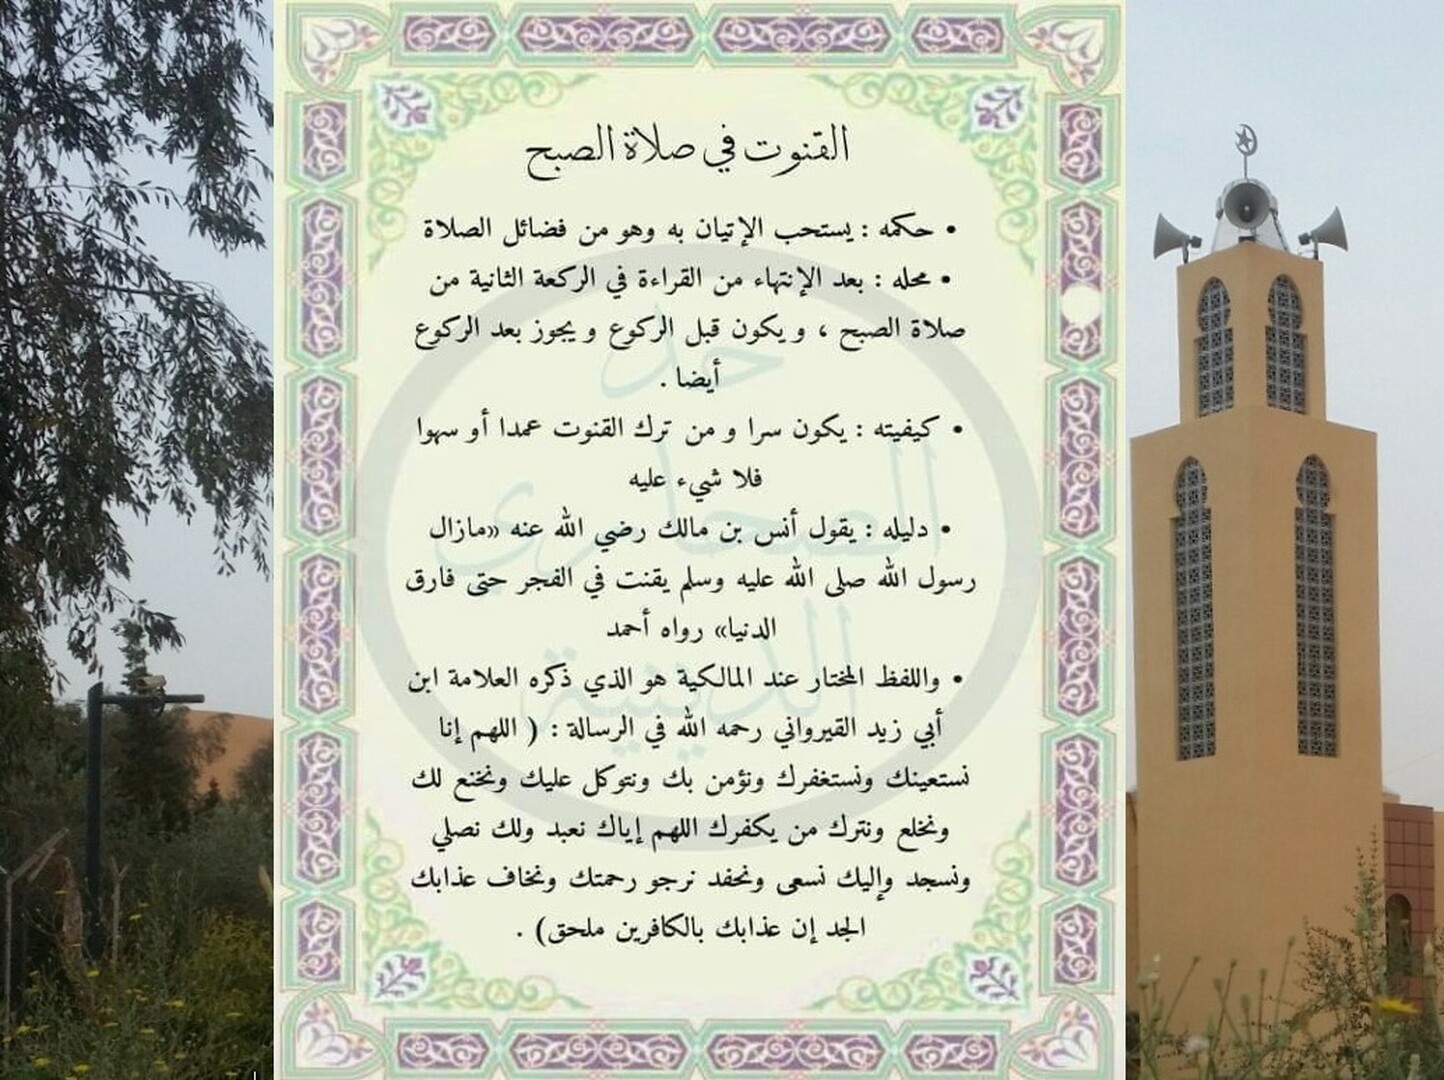 القنوت في صلاة الصبح
• حكمه : يستحب الإتيان به وهو من فضائل الصلاة
• محله : بعد الإنتهاء من القراءة في الركعة الثانية من
صلاة الصبح ، و يكون قبل الركوع و يجوز بعد الركوع
أيضا .
• كيفيته : يكون سرا و من ترك القنوت عمدا أو سهوا
فلا شيء عليه
• دليله : يقول أنس بن مالك رضي الله عنه «مازال
رسول الله صلى الله عليه وسلم يقنت في الفجر حتى فارق
الدنيا» رواه أحمد
• واللفظ المختار عند المالكية هو الذي ذكره العلامة ابن
أبي زيد القيرواني رحمه الله في الرسالة : ( اللهم إنا
نستعينك ونستغفرك ونؤمن بك ونتوكل عليك ونخنع لك
ونخلع ونترك من يكفرك اللهم إياك نعبد ولك نصلي
ونسجد وإليك نسعى ونحفد نرجو رحمتك ونخاف عذابك
الجد إن عذابك بالكافرين ملحق) .